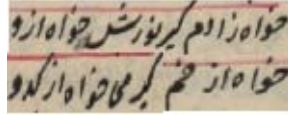 خواه ز آدم گیر نورش خواه ازو
خواه از خم گیر می خواه از کدو